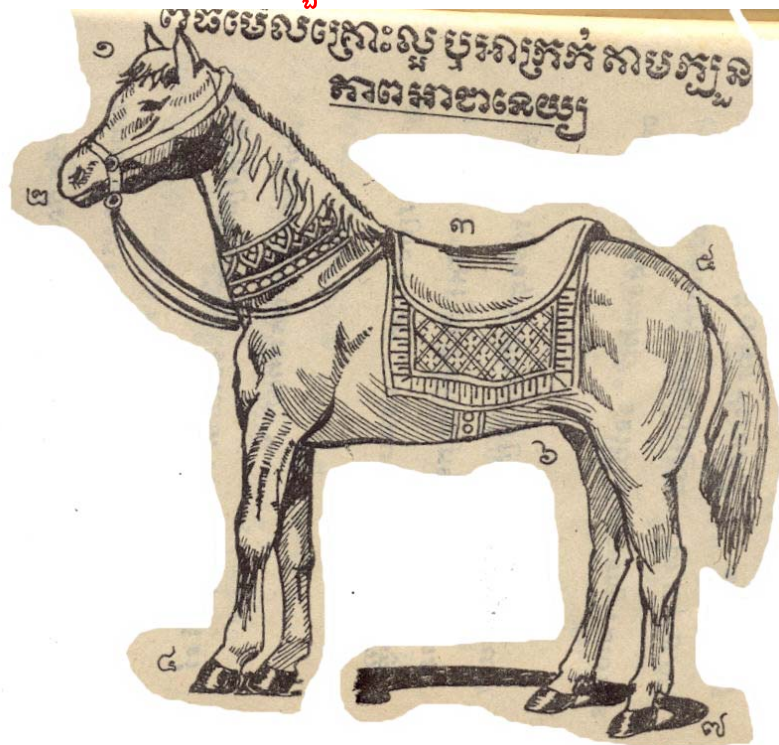 ពិធីមើលគ្រោះល្អ ឬអាក្រក់ តាមក្បួន
ភាពអាជានេយ្យ
១
២
៣
៥
៦
៤
៧